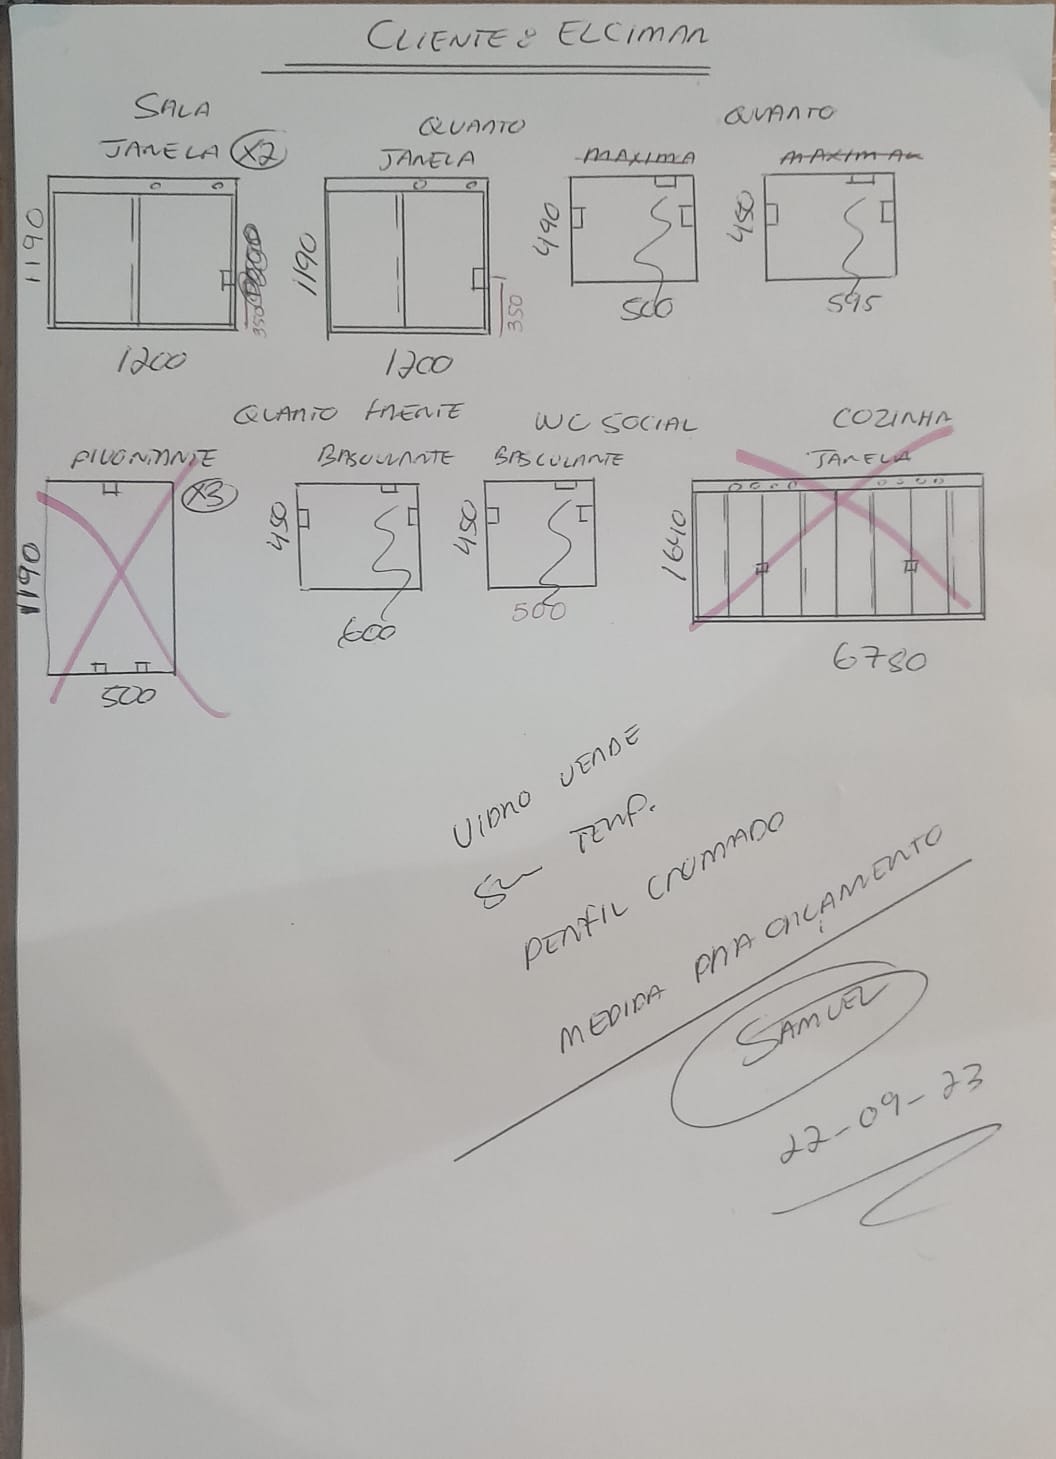 CLIENTE: ELCIMAR
SALA
JANELA X2
1190
350
1200
QUARTO
JANELA
1190
350
1200
MAXIMA
490
500
QUARTO
MAXIMAR
450
595
PIVONTANTE
X3
1190
500
QUARTO FRENTE
BASCULANTE
450
600
WC SOCIAL
BASCULANTE
450
500
COZINHA
JANELA
1640
6780
VIDRO VERDE
8m TEMP.
PERFIL CROMADO
MEDIDA PARA ORÇAMENTO
SAMUEL
22-09-23